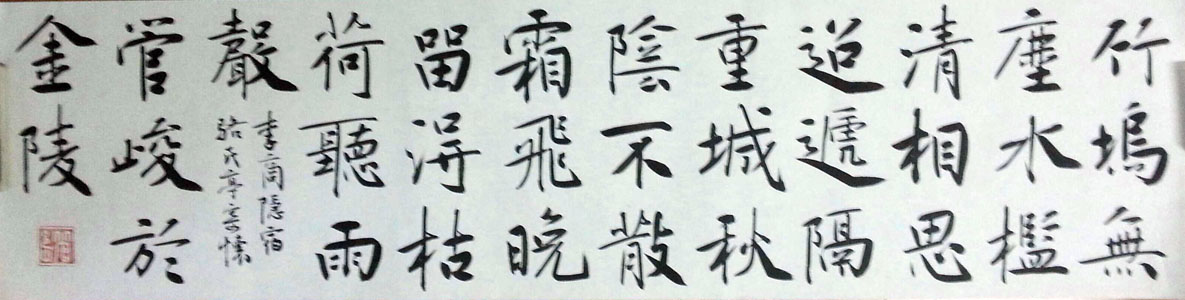 竹塢無
塵水檻
清相思
迢遞隔
重城秋
陰不散
霜飛晚
留淂枯
荷聽雨
聲
李商隱宿
駱氏亭寄懷
管峻於
金陵